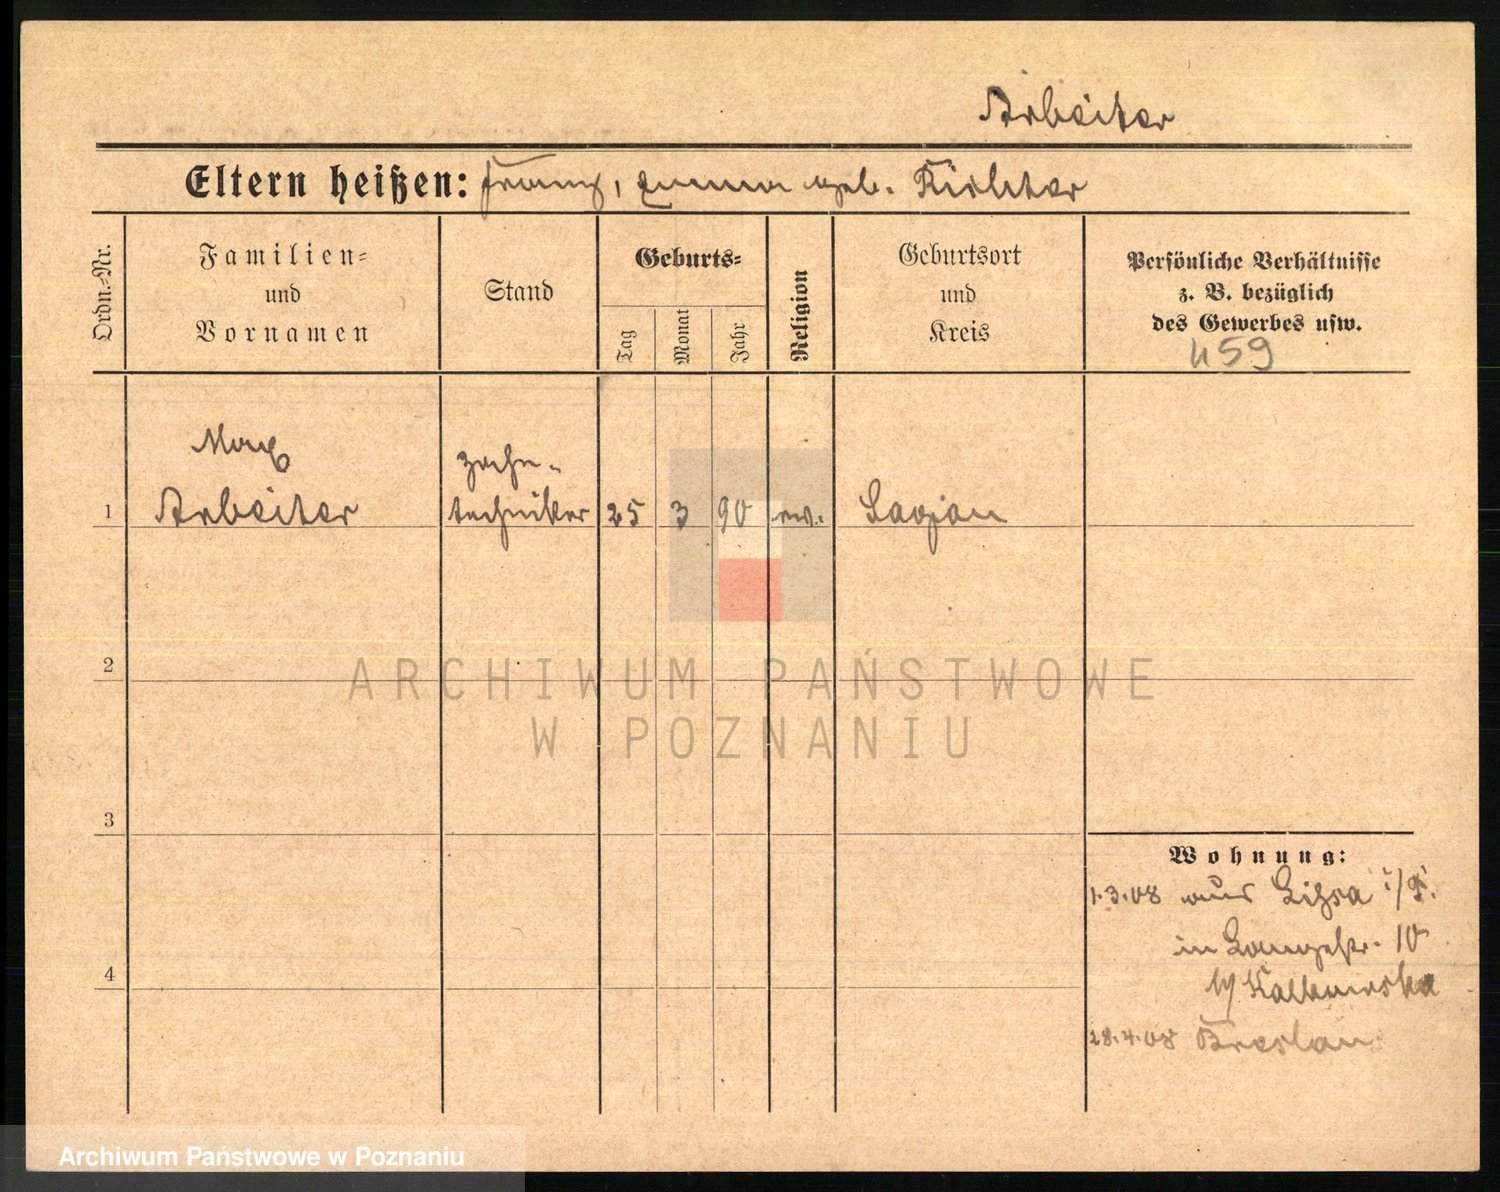 Arbeiter
Eltern heißen: Franz, Emma geb. Richter
Ordn.-Nr.
Familien-
und
Vornamen
Stand
Geburts-
Tag
Monat
Jahr
Religion
Geburtsort
und
Kreis
Persönliche Verhältnisse
z. B. bezüglich
des Gewerbes usw.
459
Max
Zahn-
1 Arbeiter techniker 25 3 90 ev.
2
3
4
Wohnung:
1.3.08 aus Lissa i/P.
in Langestr. 10
28.4.08 Breslau
ARCHIWUM PAŃSTWOWE
W POZNANIU
Archiwum Państwowe w Poznaniu